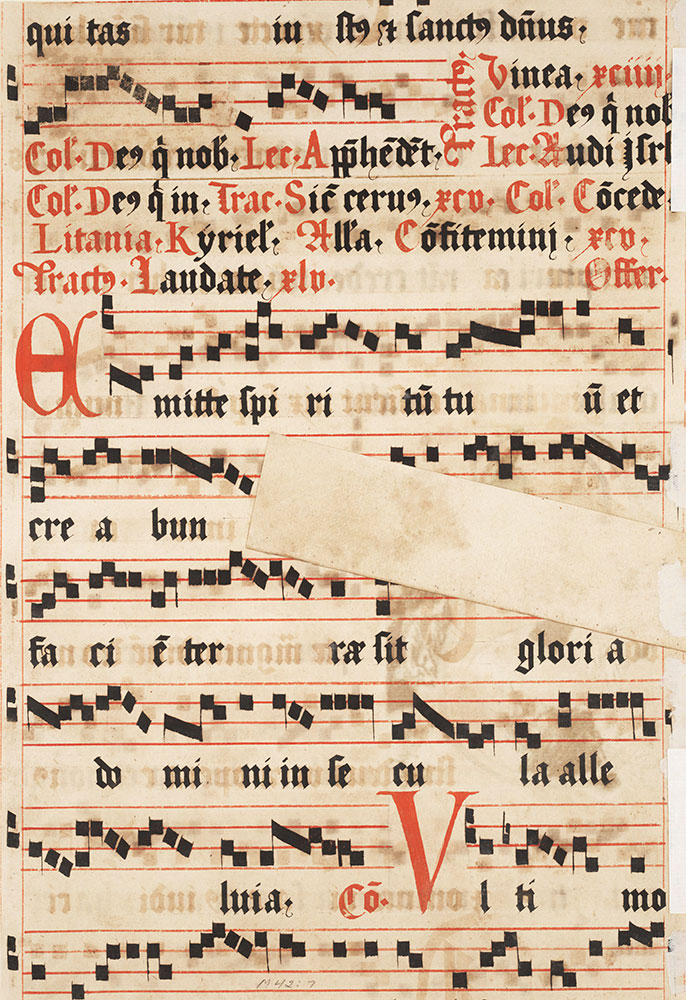 qui tas iu stꝰ ⁊ sanctꝰ dn̄us.
Tractꝰ. Vinea. xciiij
Col. Deꝰ q̄ nob
Col. Deꝰ q̄ nob. Lec. App̄hēdēt. Lec. Audi Jsrl
Col. Deꝰ q̄ in. Trac. Sic̄ cervꝰ. xcv. Col. Cōcede
Litania. Kyriel. Alla. Cōfiteminj. xcv.
Tractꝰ. Laudate. xlv. Offer.
Emitte spi ri tū tu ū et
cre a bun
fa ci ē ter ræ sit glori a
do mi ni in se cu la alle
luia. Cō. Vl ti mo
M42:7